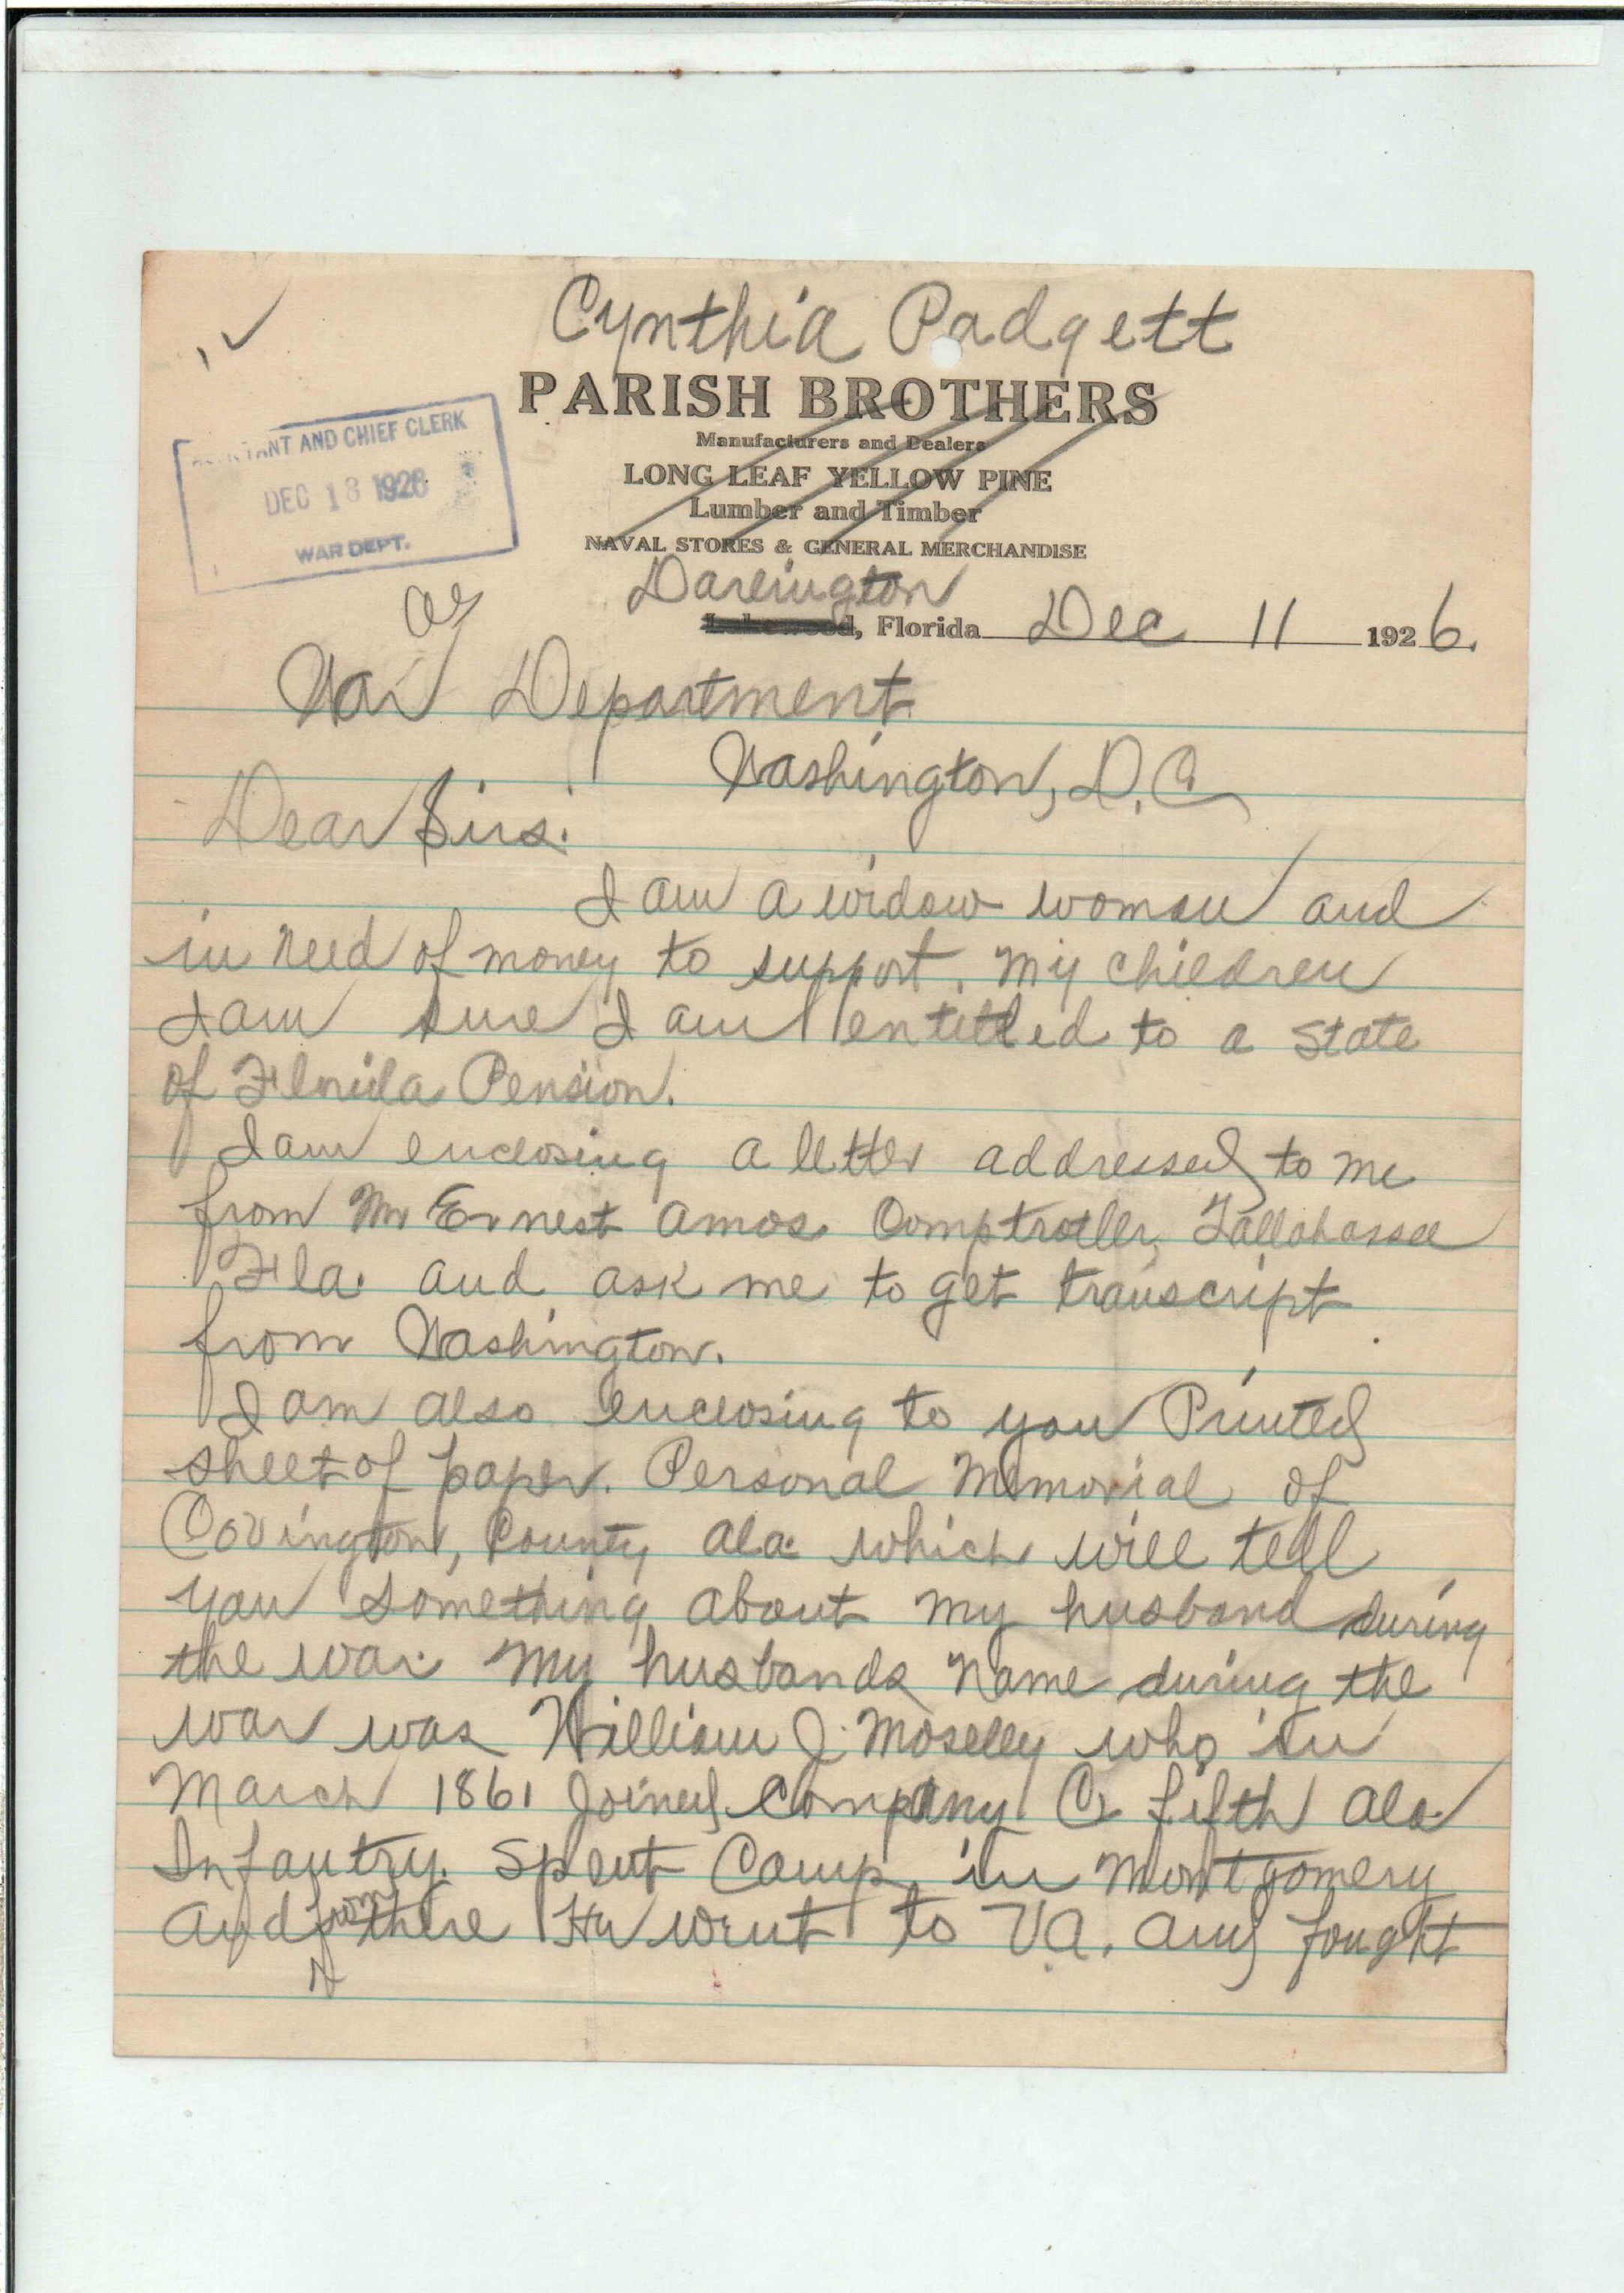 Cynthia Padgett
PARISH BROTHERS
Manufacturers and Dealers
LONG LEAF YELLOW PINE
Lumber and Timber
NAVAL STORES & GENERAL MERCHANDISE
TANT AND CHIEF CLERK
DEC 18 1926
WAR DEPT.
Darlington
Lakewood, Florida Dec 11 1926.
War Department
Washington, D.C.
Dear Sirs:
I am a widow woman and
in need of money to support, my children
I am sure I am entitled to a state
of Florida Pension.
I am enclosing a letter addressed to me
from Mr Ernest Amos Comptroller, Tallahassee
Fla. and ask me to get transcript
from Washington.
I am also enclosing to you Printed
sheet of paper. Personal Memorial of
Covington, County Ala. which will tell
you something about my husband during
the war. My husbands name during the
war was William J. Moselly who in
March 1861 Joined Company C, fifth Ala
Infantry. Spent Camp in Montgomery
and from there He went to Va. and fought